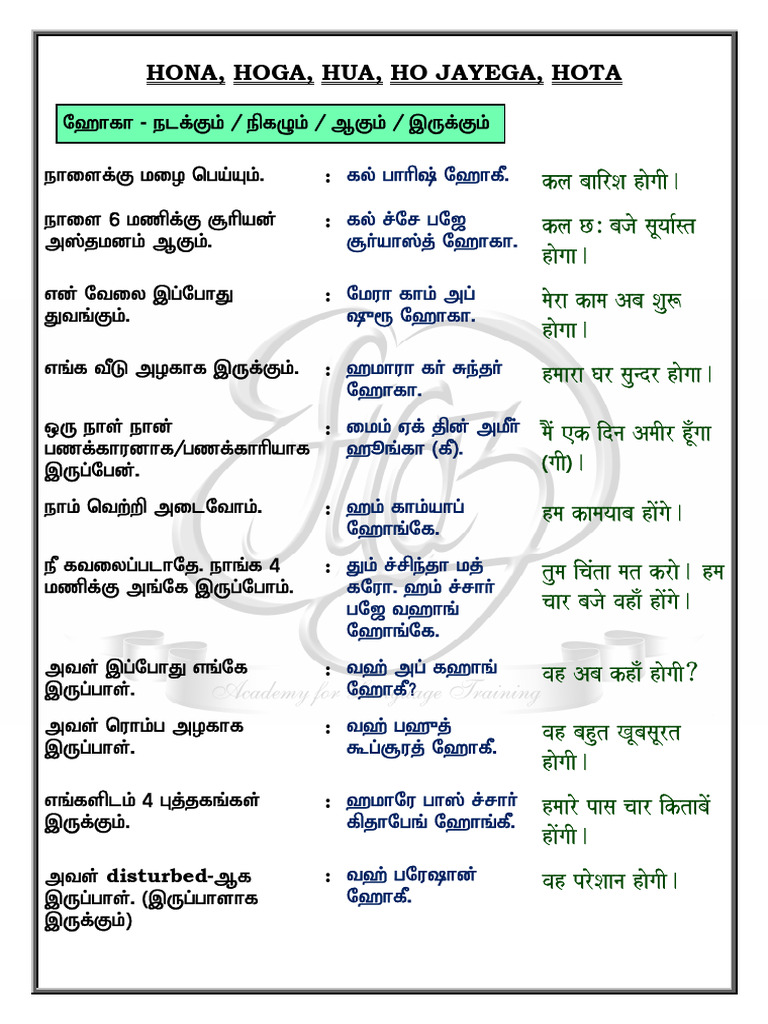 HONA, HOGA, HUA, HO JAYEGA, HOTA
ஹோகா - நடக்கும் / நிகழும் / ஆகும் / இருக்கும்
நாளைக்கு மழை பெய்யும். : கல் பாரிஷ் ஹோகீ. कल बारिश होगी।
நாளை 6 மணிக்கு சூரியன் : கல் ச்சே பஜே कल छः बजे सूर्यास्त
அஸ்தமனம் ஆகும். சூர்யாஸ்த் ஹோகா. होगा।
என் வேலை இப்போது : மேரா காம் அப் मेरा काम अब शुरू
துவங்கும். ஷுரூ ஹோகா. होगा।
எங்க வீடு அழகாக இருக்கும். : ஹமாரா கர் சுந்தர் हमारा घर सुन्दर होगा।
ஹோகா.
ஒரு நாள் நான் : மைம் ஏக் தின் அமீர் मैं एक दिन अमीर हूँगा
பணக்காரனாக/பணக்காரியாக ஹூங்கா (கீ). (गी)।
இருப்பேன்.
நாம் வெற்றி அடைவோம். : ஹம் காம்யாப் हम कामयाब होंगे।
ஹோங்கே.
நீ கவலைப்படாதே. நாங்க 4 : தும் ச்சிந்தா மத் तुम चिंता मत करो। हम
மணிக்கு அங்கே இருப்போம். கரோ. ஹம் ச்சார் चार बजे वहाँ होंगे।
பஜே வஹாங்
ஹோங்கே.
அவள் இப்போது எங்கே : வஹ் அப் கஹாங் वह अब कहाँ होगी?
இருப்பாள். ஹோகீ?
Academy for Language Training
அவள் ரொம்ப அழகாக : வஹ் பஹுத் वह बहुत खूबसूरत
இருப்பாள். கூப்சூரத் ஹோகீ. होगी।
எங்களிடம் 4 புத்தகங்கள் : ஹமாரே பாஸ் ச்சார் हमारे पास चार किताबें
இருக்கும். கிதாபேங் ஹோங்கீ. होंगी।
அவள் disturbed-ஆக : வஹ் பரேஷான் वह परेशान होगी।
இருப்பாள். (இருப்பாளாக ஹோகீ.
இருக்கும்)